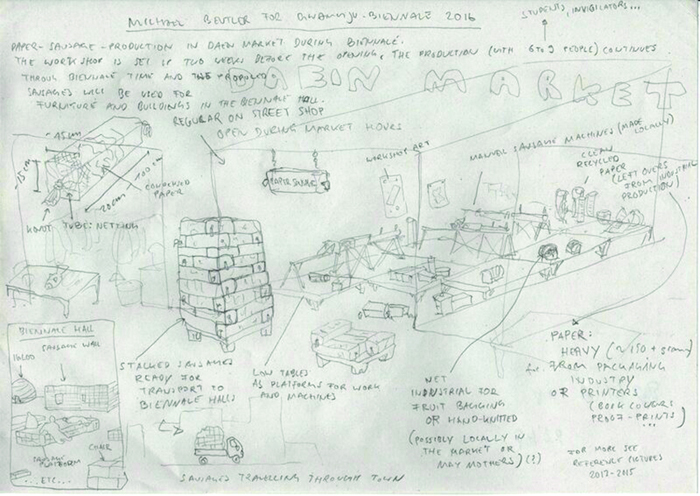 MICHAEL BEUTLER FOR GWANGJU-BIENNALE 2016
STUDENTS, INVIGILATORS...
PAPER-SAUSAGE-PRODUCTION IN DAEIN MARKET DURING BIENNALE.
THE WORKSHOP IS SET UP TWO WEEKS BEFORE THE OPENING, THE PRODUCTION (WITH 6 TO 9 PEOPLE) CONTINUES
THROUGH BIENNALE TIME AND THE PRODUCED
SAUSAGES WILL BE USED FOR
FURNITURE AND BUILDINGS IN THE BIENNALE HALL.
DAEIN MARKET
REGULAR ON STREET SHOP
OPEN DURING MARKET HOURS
~45cm
~35cm
100cm
120cm
CONDENSED
PAPER
KNOT
TUBE: NETTING
PAPER SAUSAGE
WORKSHOP ART
MANUAL SAUSAGE MACHINES (MADE LOCALLY)
CLEAN
RECYCLED
PAPER
(LEFT OVERS
FROM INDUSTRIAL
PRODUCTION)
BIENNALE HALL
IGLOO
SAUSAGE WALL
SAUSAGE
PLATFORM
CHAIR
...ETC...
STACKED SAUSAGES
READY FOR
TRANSPORT TO
BIENNALE HALLS
LOW TABLES
AS PLATFORMS FOR WORK
AND MACHINES
SAUSAGES TRAVELLING THROUGH TOWN
NET
INDUSTRIAL FOR
FRUIT BAGGING
OR HAND-KNITTED
(POSSIBLY LOCALLY IN
THE MARKET OR
MAY MOTHERS) (?)
PAPER:
HEAVY (~150+ gramm)
FROM PACKAGING
INDUSTRY
OR PRINTERS
(BOOK COVERS
PROOF-PRINTS...
...)
FOR MORE SEE
REFERENCE PICTURES
2012-2015